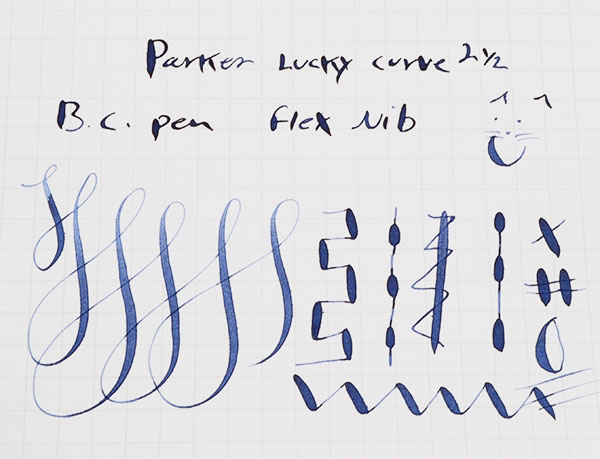 Parker Lucky curve 2½
B.C. pen flex Nib